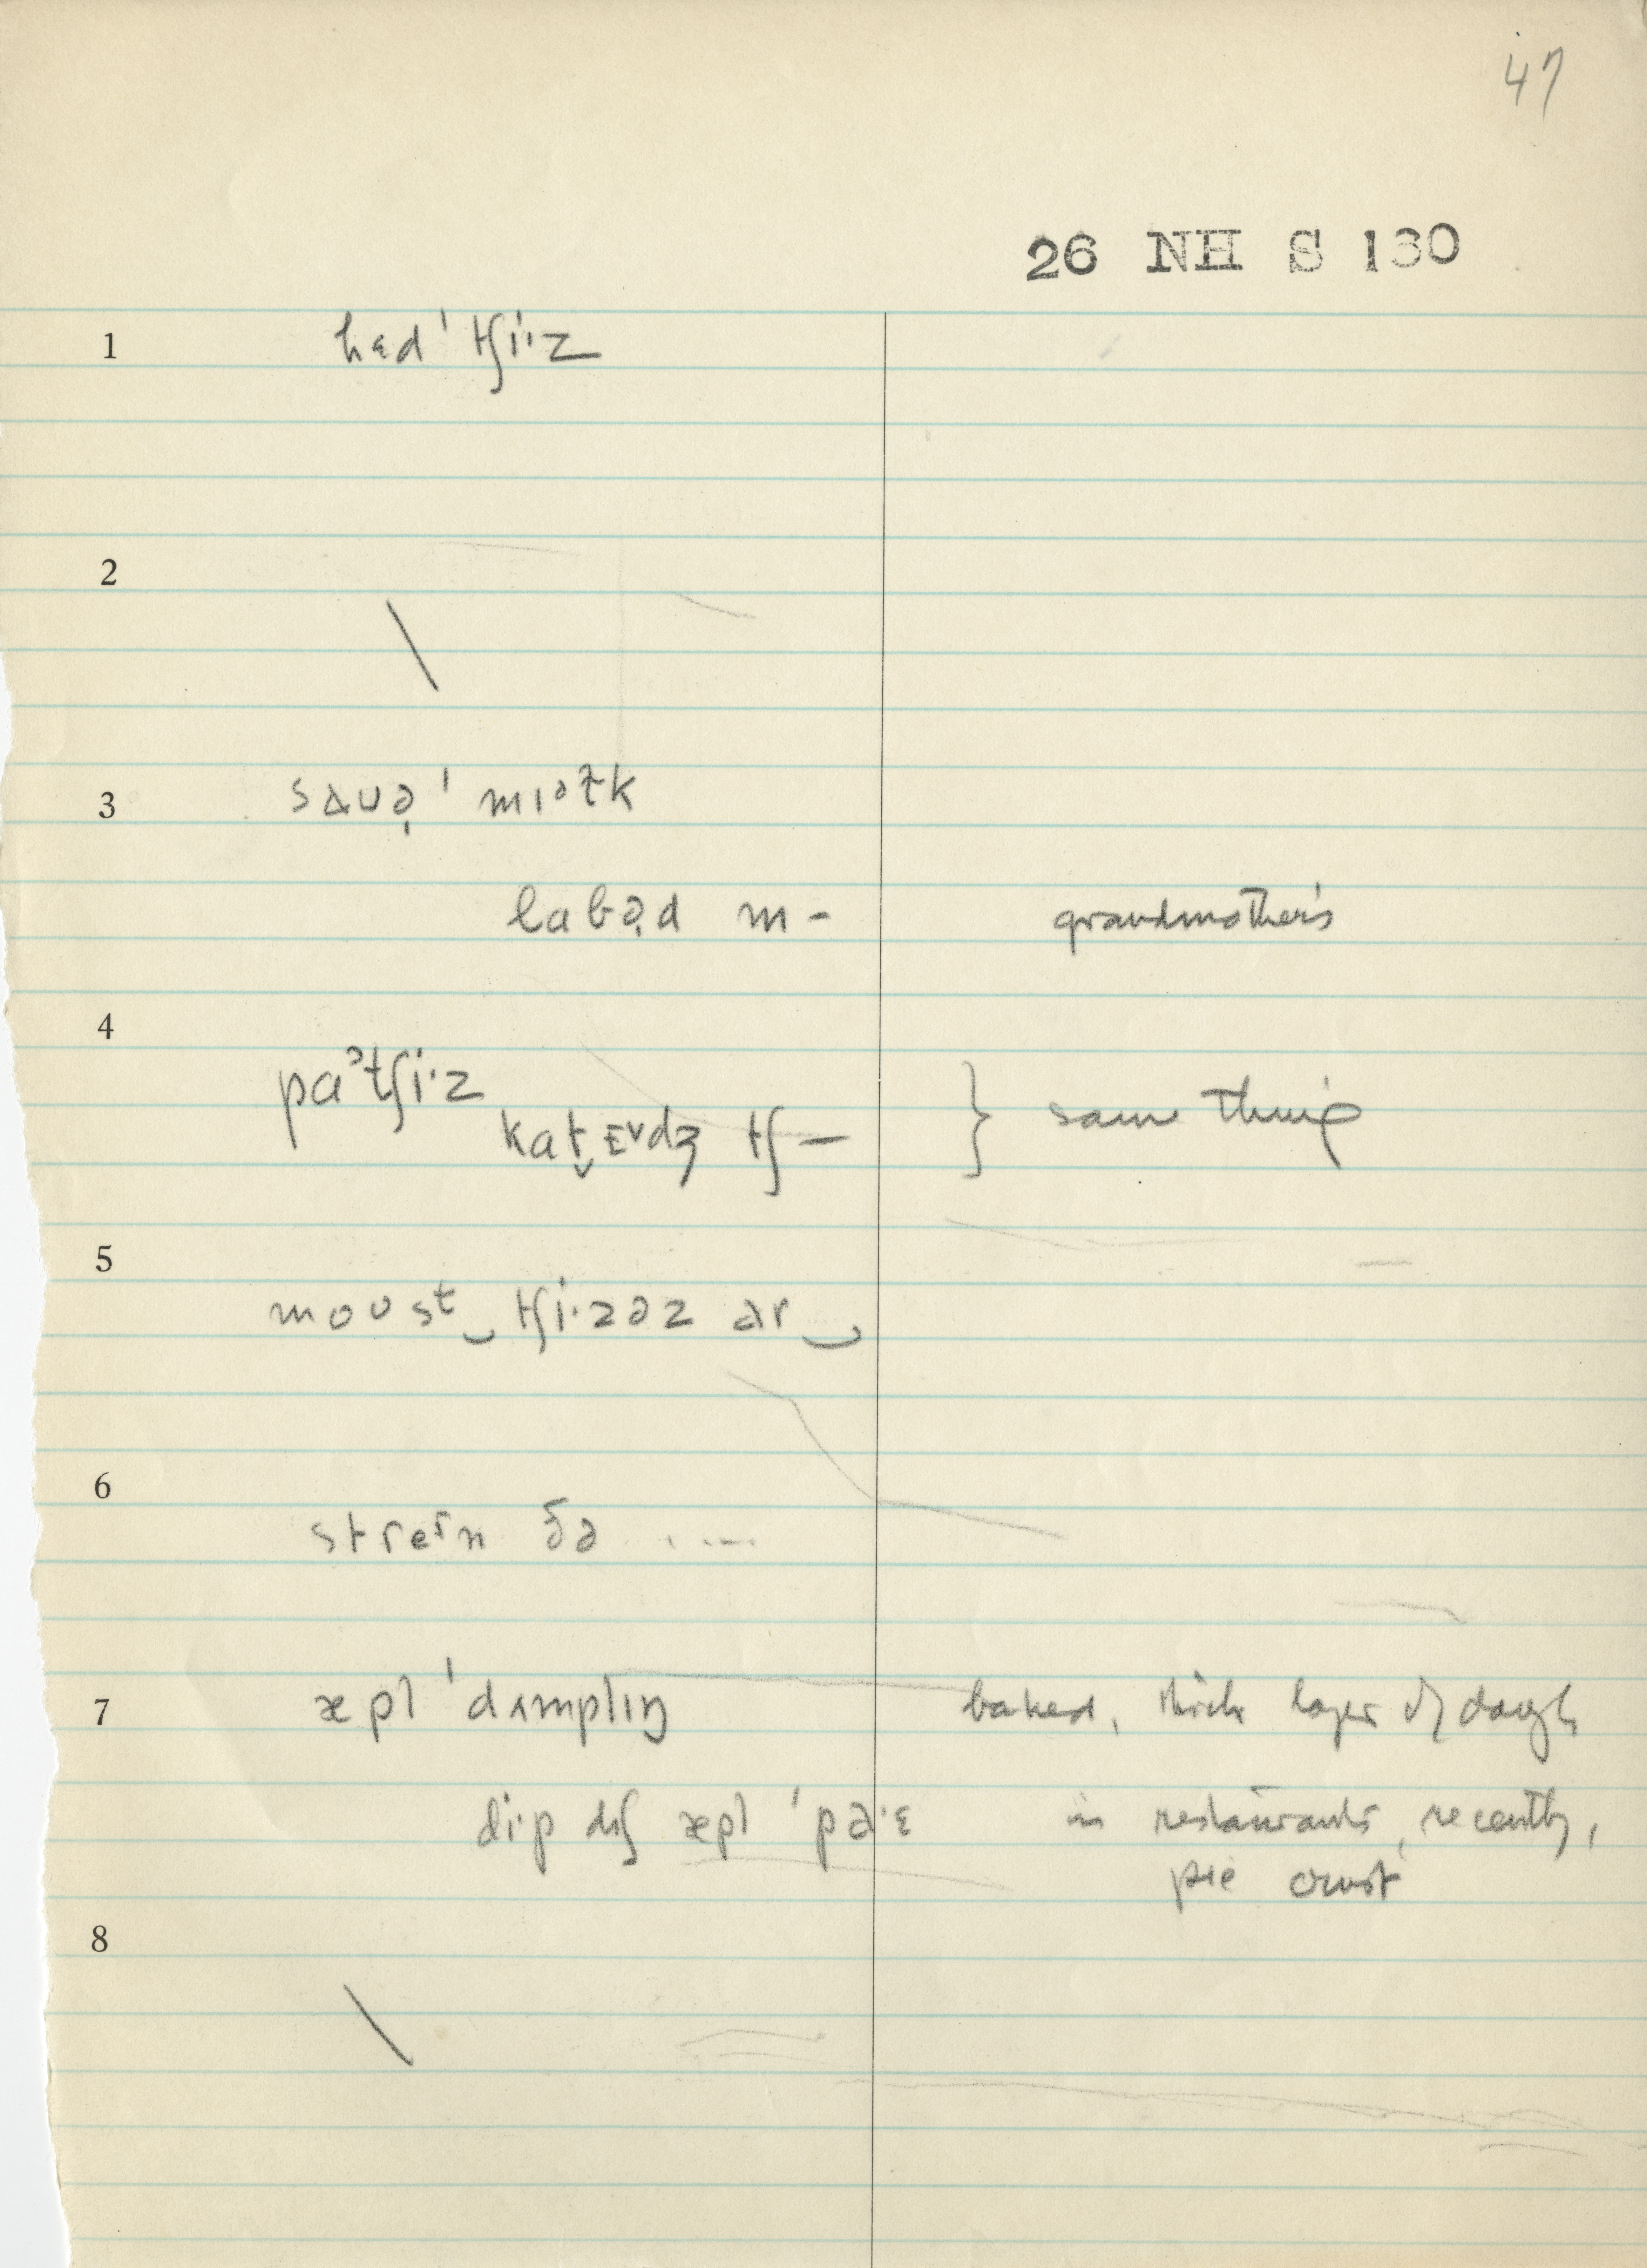 47
26 NH S 130
1 hɛd ˈtʃi·z
2 \
3 sɑuə̣ ˈmɪəɫk
labə̣d m- grandmother's
4 paᵊtʃi·z
kat̬ɛᵛdʒ tʃ— } same thing
5 moʊsᵗ‿tʃi·zəz ər‿
6 streᶦn ðə .....
7 æpl ˈdʌmplɪŋ baked, thick layer of dough
di·p dɪʃ æpl ˈpɑ·ɛ in restaurants, recently,
pie crust
8 \